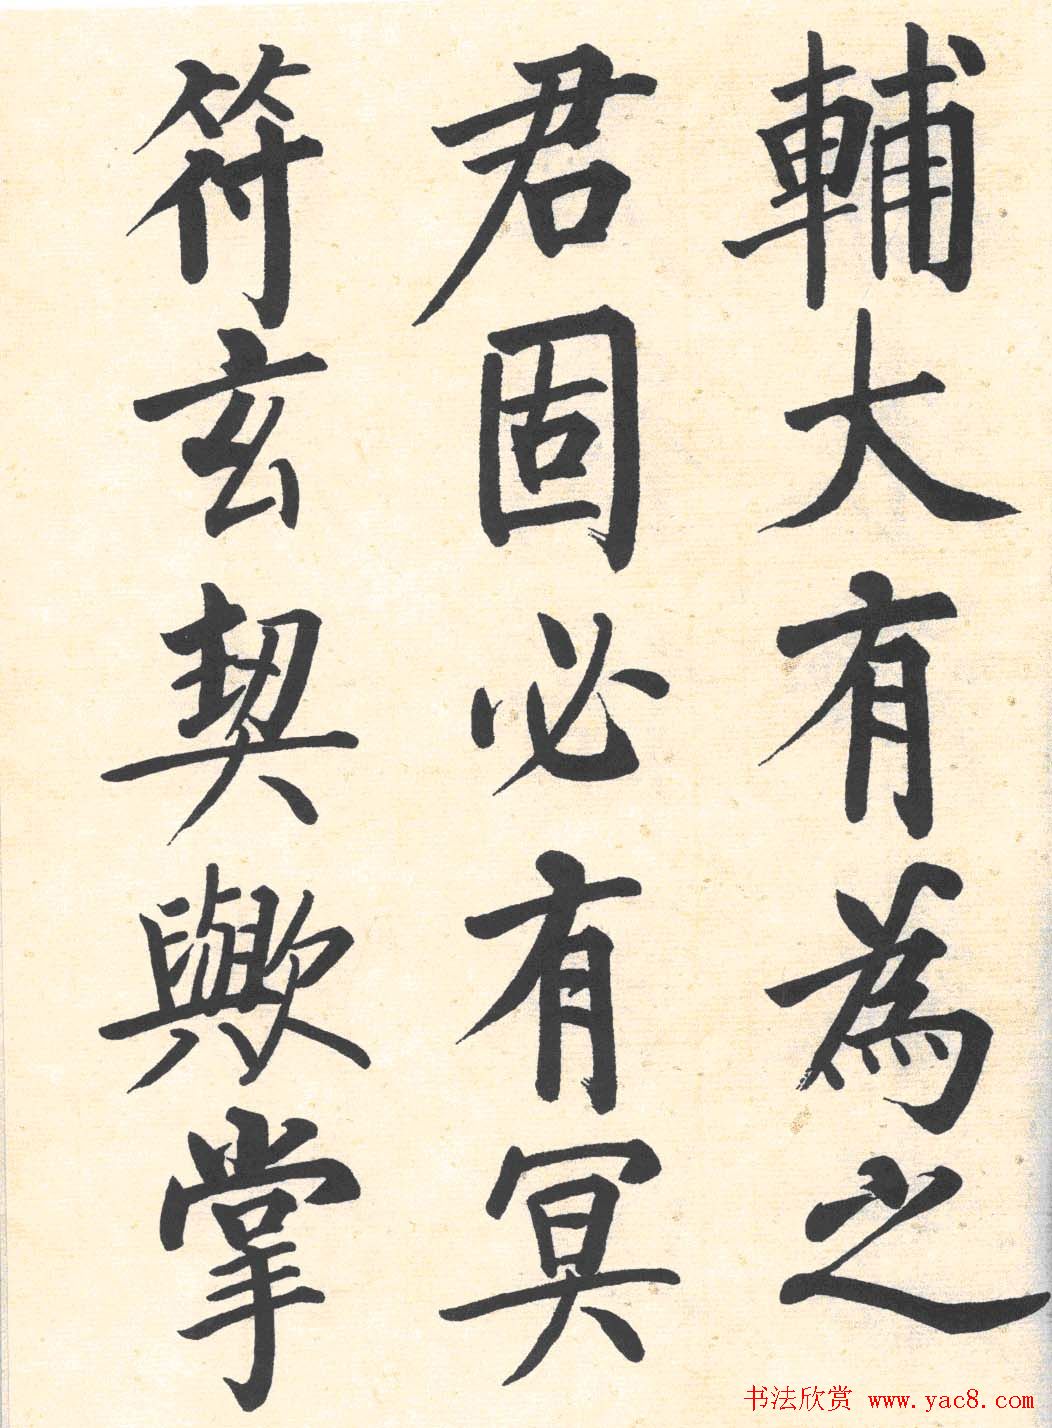 輔大有為之
君固必有冥
符玄契歟掌
书法欣赏 www.yac8.com